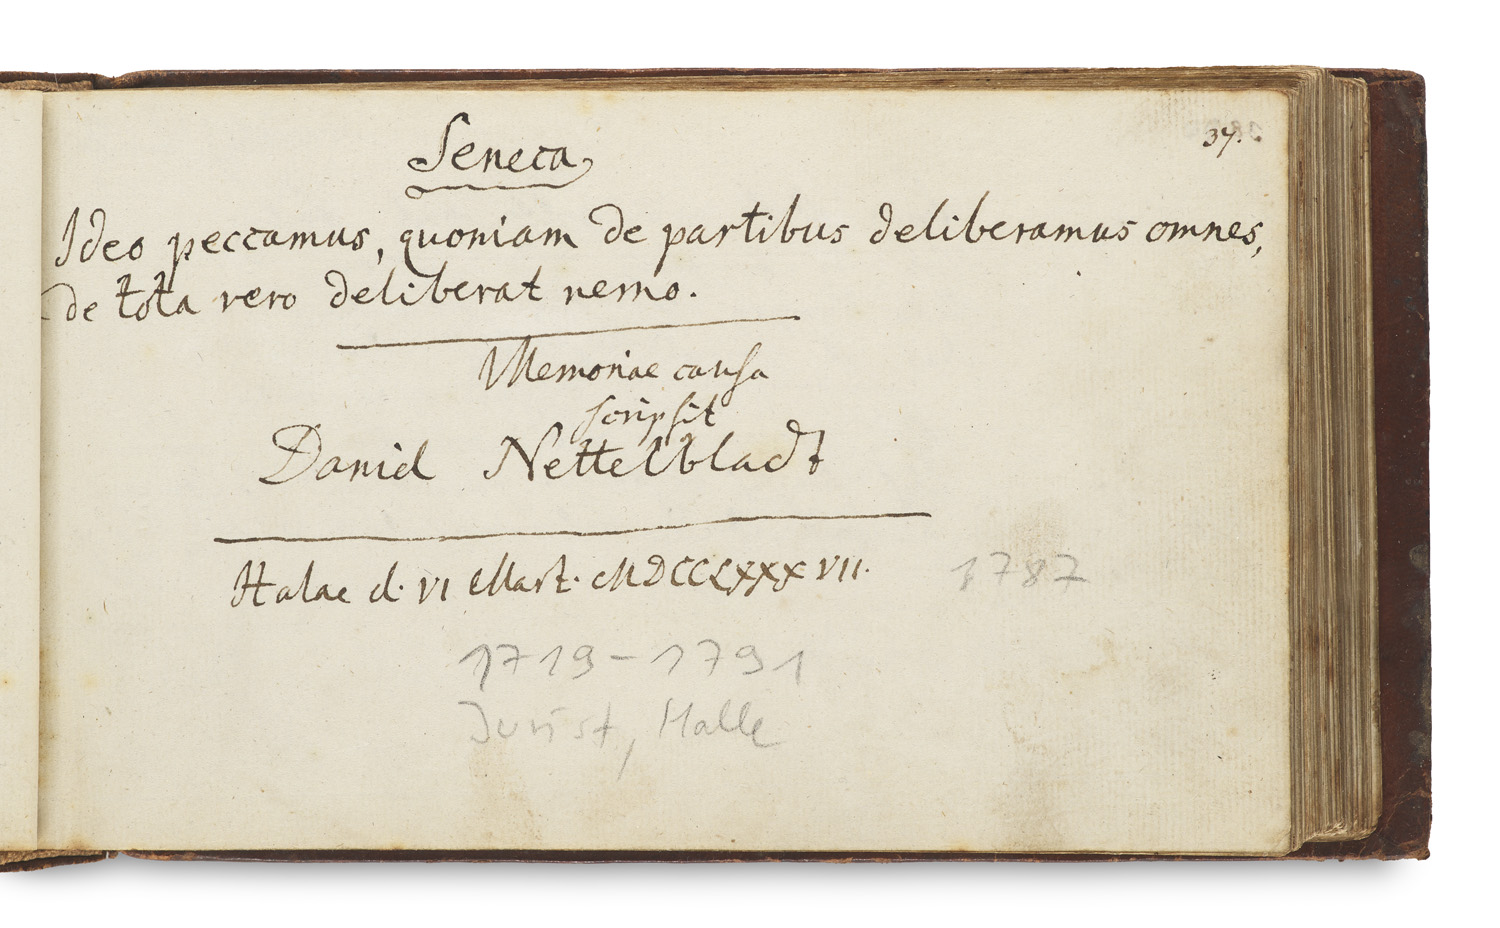 37.
Seneca
Ideo peccamus, quoniam de partibus deliberamus omnes,
de tota vero deliberat nemo.
Memoriae causa
scripsit
Daniel Nettelbladt
Halae d. VI Mart. MDCCLXXXVII.
1787
1719-1791
Jurist, Halle